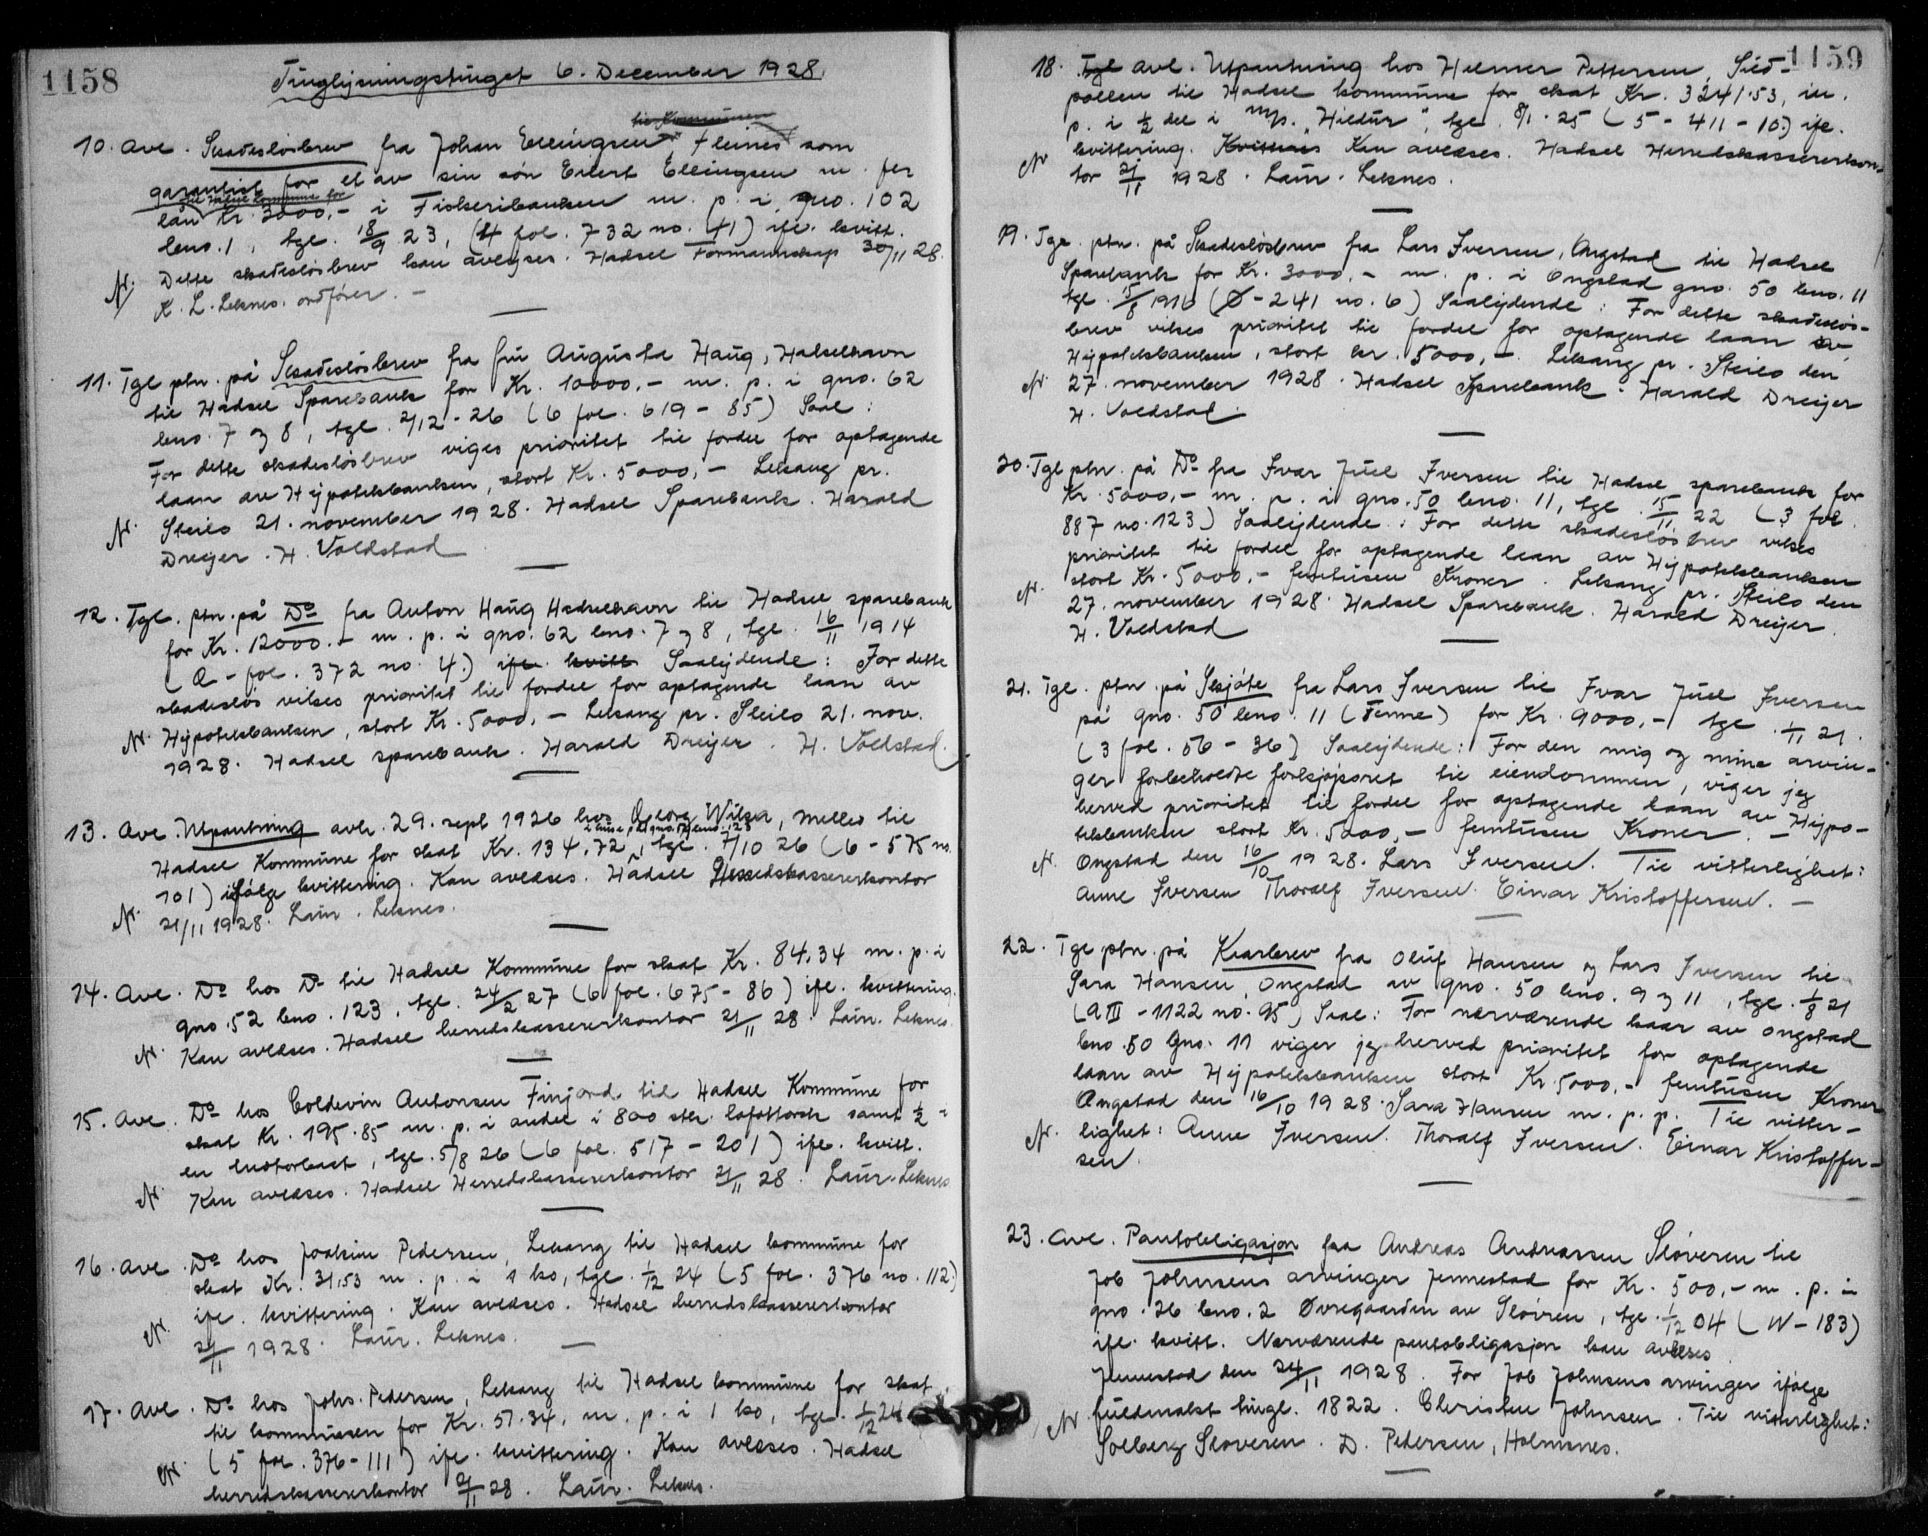 1158
Tinglysningstinget 6. December 1928.
til Kommunen
10. Avl. Skadeslösbrev fra Johan Ellingsen Fleines som
garantist for et av sin sön Evert Ellingsen m. fer
til Hadsel Kommune for
lån Kr. 3000,- i Fiskeribanken m. p. i gno. 102
bno. 1, tgl. 18/9 23, (4 fol. 732 no. 41) ifl. kvitt.
Dette skadeslösbrev kan avlyses. Hadsel Formannskap 30/11 28.
N. K. L. Leknes. ordförer. -
11. Tgl ptn. på Skadeslösbrev fra fru Augusta Haug, Hadselhavn
til Hadsel Sparebank for Kr. 10000.- m. p. i gno. 62
bno. 7 og 8, tgl. 2/12 - 26 (6 fol. 619 - 85) Saal:
For dette skadeslösbrev viges prioritet til fordel for optagende
laan av Hypotekbanken, stort Kr. 5000,- Leksang pr.
N. Steilo 21. november 1928. Hadsel Sparebank. Harald
Dreyer. H. Voldstad
12. Tgl. ptn. på Do fra Anton Haug Hadselhavn til Hadsel sparebank
for Kr. 12000.- m. p. i gno. 62 bno. 7 og 8, tgl. 16/11 1914
(Q - fol. 372 no. 4.) ifl. kvitt Saalydende: For dette
skadeslös vikes prioritet til fordel for optagende laan av
N. Hypotekbanken, stort Kr. 5000.- Leksang pr. Steilo 21. nov.
1928. Hadsel sparebank. Harald Dreyer. H. Voldstad.
13. Avl. Utpantning avh. 29. sept 1926 hos Georg Wilsn, Melbo til
i hus på gno. 52 bno. 123
Hadsel Kommune for skat Kr. 134,72, tgl. 7/10 26 (6 - 575 no.
101) ifölge kvittering. Kan avlæses. Hadsel Herredskassererkontor
N. 21/11 1928. Laur. Leknes.
14. Avl. Do hos Do til Hadsel Kommune for skat Kr. 84.34 m. p. i
gno. 52 bno. 123, tgl. 24/2 27 (6 fol. 675 - 86) ifl. kvittering.
N. Kan avlæses. Hadsel herredskassererkontor 21/11 28. Laur. Leknes.
15. Avl. Do hos Coldevin Antonsen Finjord til Hadsel Kommune for
skat Kr. 195.85 m. p. i andel i 800 stk. Lofottorsk samt 1/2 i
en motorbaat, tgl. 5/8 26 (6 fol. 517 - 201) ifl. kvitt.
N. Kan avlæses. Hadsel Herredskassererkontor 21/11 28. Laur. Leknes
16. Avl. Do hos Joakim Pedersen, Leksang til Hadsel kommune for
skat Kr. 31,53 m. p. i 1 ko, tgl. 1/12 24 (5 fol. 376 no. 112.)
ifl. kvittering. Kan avlæses. Hadsel herredskassererkontor
N. 21/11 1928. Laur. Leknes.
17. Avl. Do hos Johs. Pedersen, Leksang til Hadsel kommune for skat
til kommunen for Kr. 51.34, m. p. i 1 ko, tgl. 1/12 24
(5 fol. 376 - 111) ifl. kvittering. Kan avlæses. Hadsel
N. herredskassererkontor 21/11 28. Laur. Leknes.
1159
18. Tgl Avl. Utpantning hos Helmer Pettersen, Sild-
pollen til Hadsel kommune for skat Kr. 3241.53, m.
p. i 1/2 del i m/s. "Hildur", tgl. 8/1. 25 (5 - 411 - 10.) ifl.
kvittering. Kvitteres Kan avlæses. Hadsel Herredskassererkon-
N. tor 21/11 1928. Laur. Leknes.
19. Tgl. ptn. på Skadeslösbrev fra Lars Iversen, Ongstad til Hadsel
Sparebank for Kr. 3000.- m. p. i Ongstad gno. 50 bno. 11
tgl. 15/8 1916 (Ø - 241 no. 6) Saalydende: For dette skadeslös-
brev vikes prioritet til fordel for optagende laan av
Hypotekbanken, stort kr. 5000,-. Leksang pr. Steilo den
N. 27. november 1928. Hadsel Sparebank. Harald Dreyer
H. Voldstad.
20. Tgl ptn. på Do fra Ivar Juel Iversen til Hadsel sparebank for
Kr. 5000,- m. p. i gno. 50 bno. 11, tgl. 15/11 22 (3 fol.
887 no. 123) Saalydende: For dette skadeslös brev vikes
prioritet til fordel for optagende laan av Hypotekbanken
stort Kr. 5000.- femtusen Kroner. Leksang pr. Steilo den
N. 27. november 1928. Hadsel Sparebank. Harald Dreyer.
H. Voldstad
21. Tgl. ptn. på Skjöte fra Lars Iversen til Ivar Juel Iversen
på gno. 50 bno. 11 (Tenne) for Kr. 9000,- tgl. 1/11 21.
(3 fol. 56 - 36) Saalydende: For den mig og mine arvin-
ger forbeholdte forkjöpsret til eiendommen, viger jeg
herved prioritet til fordel for optagende laan av Hypo-
tekbanken stort Kr. 5000,- femtusen Kroner. -
N. Ongstad den 16/10 1928. Lars Iversen. Til vitterlighet:
Anne Iversen Thoralf Iversen. Einar Kristoffersen. -
22. Tgl ptn. på Kaarbrev fra Oluf Hansen og Lars Iversen til
Sara Hansen, Ongstad av gno. 50 bno. 9 og 11, tgl. 1/8 21
(A III - 1122 no. 95) Saal: For nærværende kaar av Ongstad
bno. 50 Gno. 11 viger jeg herved prioritet for optagende
laan av Hypotekbanken stort Kr. 5000.- femtusen Kroner
Ongstad den 16/10 1928. Sara Hansen m. p. p. Til vitter-
N. lighet: Anne Iversen. Thoralf Iversen. Einar Kristoffer-
sen.
23. Avl. Pantobligasjon fra Andreas Andreassen Slöveren til
Job Johnsens arvinger Jennestad for Kr. 500,- m. p. i
gno. 26 bno. 2 Øvregaarden av Slövren, tgl. 1/12 04 (W - 183)
ifl. kvitt. Nærværende pantobligasjon kan avlæses
Jennestad den 24/11 1928. For Job Johnsens arvinger ifölge
N. fuldmakt tingl. 1822. Christen Johnsen. Til vitterlighet:
Solberg Slöveren. D. Pedersen, Holmsnes.